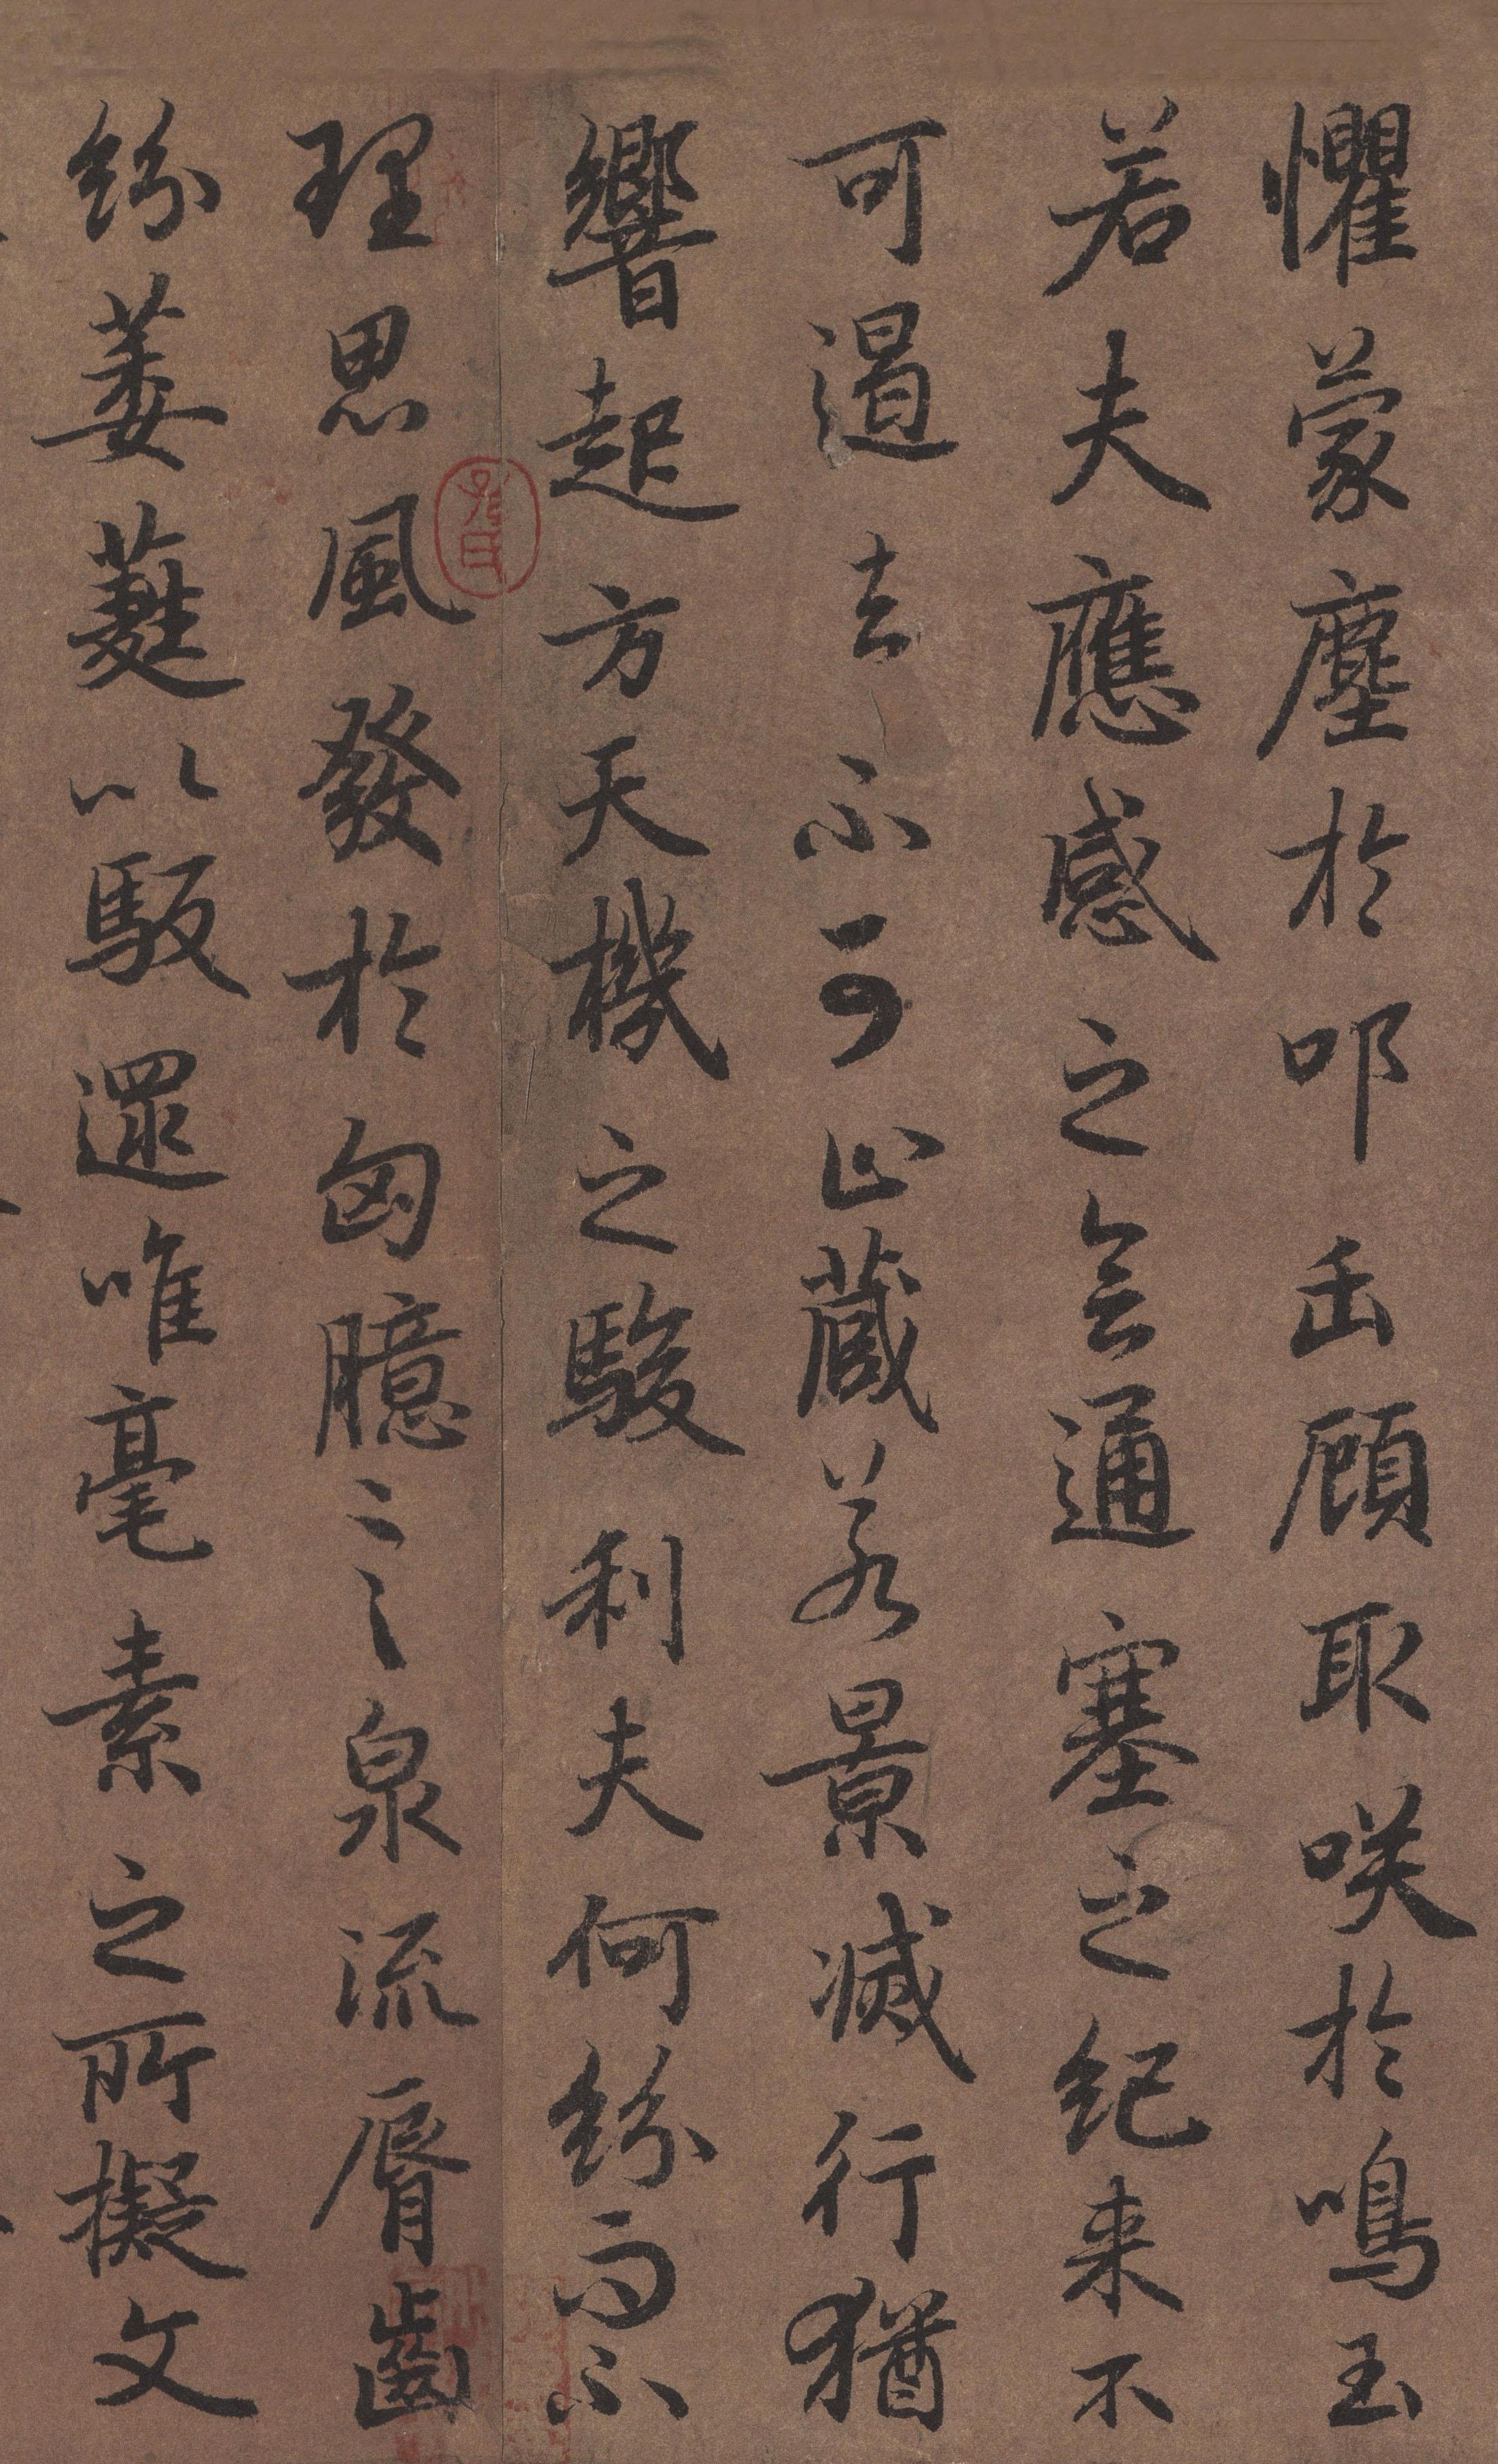 懼蒙塵於叩缶顧取咲於鳴玉
若夫應感之會通塞之紀来不
可遏去不可止蔵若景滅行猶
響起方天機之駿利夫何紛而不
理思風發於匈臆〻之泉流脣齒
紛葳蕤以馺遝唯毫素之所擬文